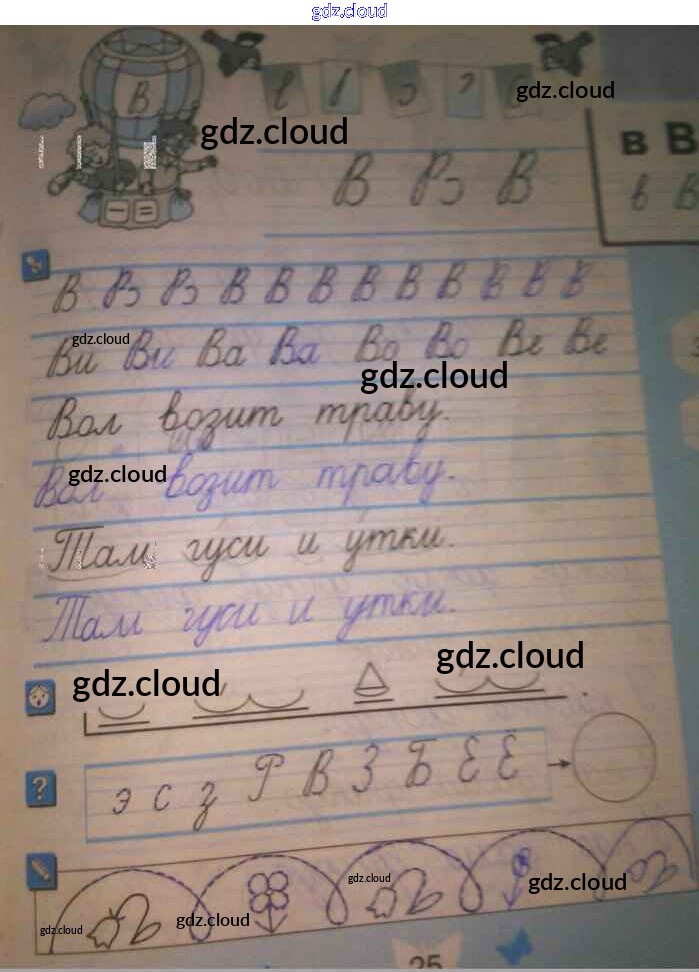 gdz.cloud
В
gdz.cloud
gdz.cloud
в В
в В
В Рз В
В Рз Рз В В В В В В В В В
gdz.cloud
Ви Ви Ва Ва Во Во Ве Ве
gdz.cloud
Вол возит траву.
gdz.cloud
Вол возит траву.
Там гуси и утки.
Там гуси и утки.
gdz.cloud
gdz.cloud
?
э с з Р В З Б Е Ё
gdz.cloud
gdz.cloud
gdz.cloud
gdz.cloud
25